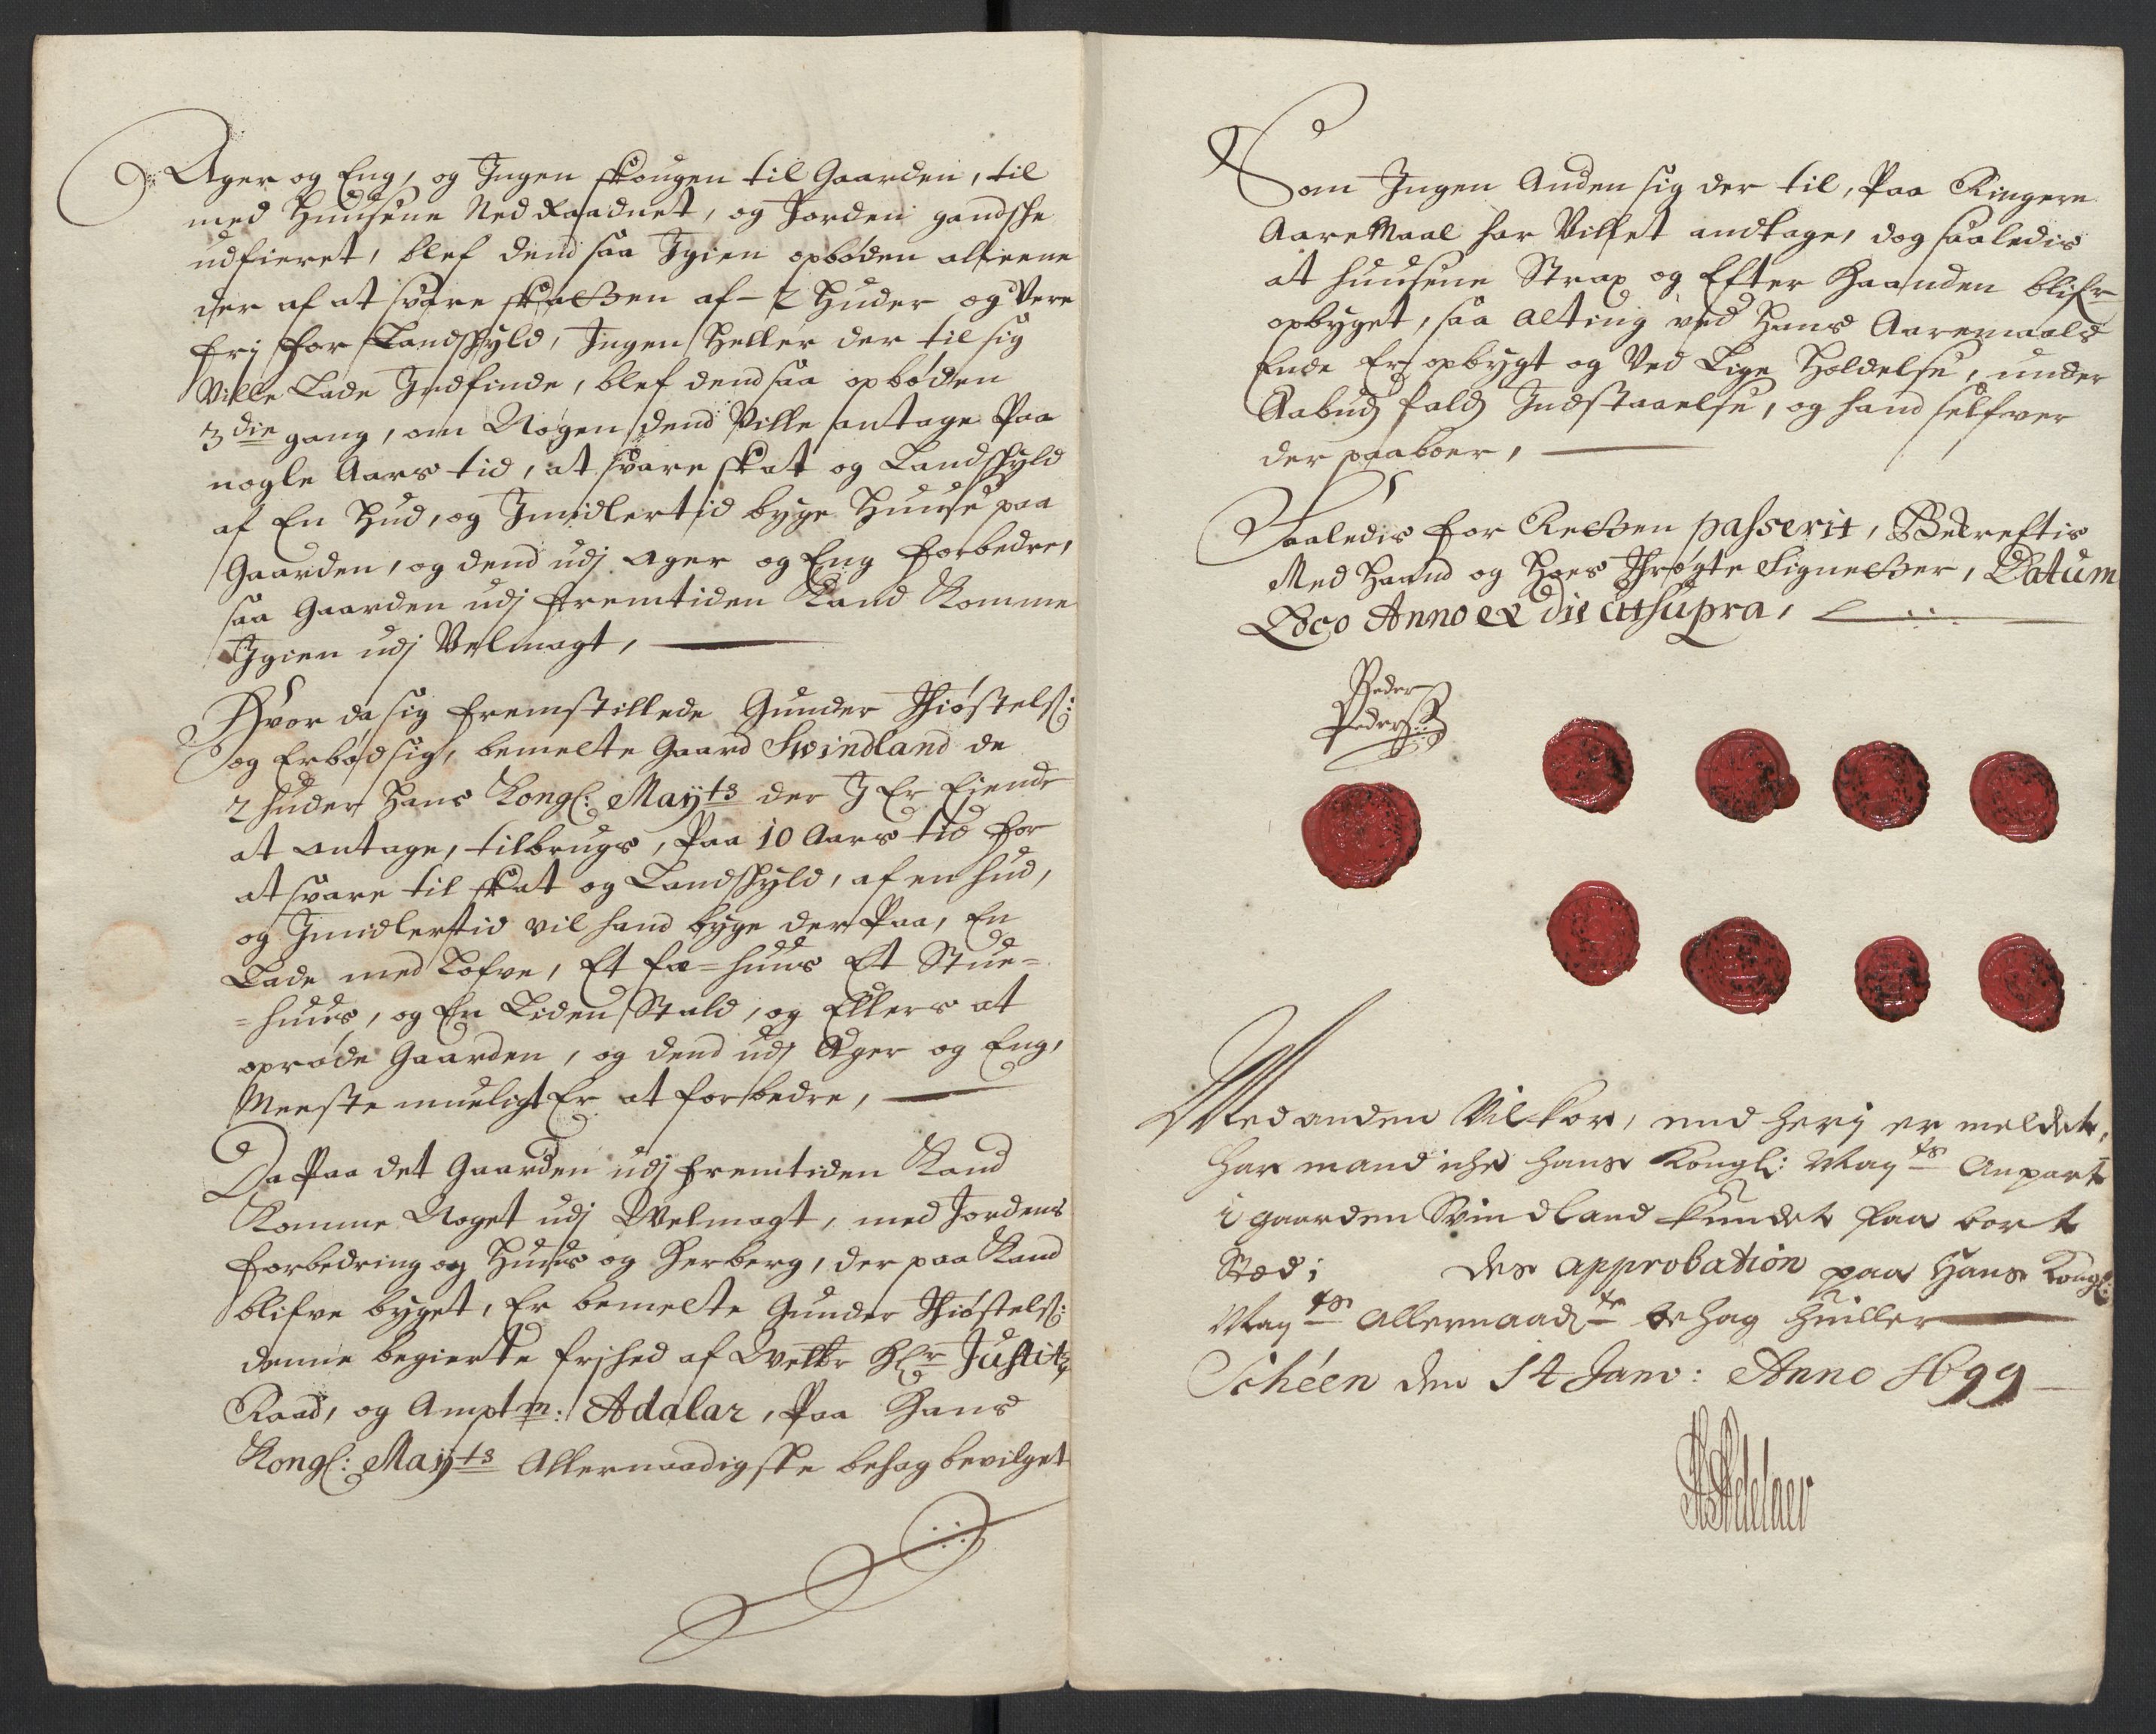 Ager og Eng, og Ingen skougen til Gaarden, til
med Huusene Ned Raadnet, og Jorden gandsche
udfieret, blef dend saa Igien opbøden alleene
der af at svare skatten af - 2 Huder og Vere
fri for Landschyld, Ingen Heller der til sig
Ville Lade Indfinde, blef dend saa opbøden
3die gang, om Nogen dend Ville antage Paa
nogle Aars tid, at svare skat og Landschyld
af En Hud, og Imidlertid byge Huuse paa
Gaarden, og dend udj Ager og Eng forbedre,
saa Gaarden udj fremtiden Kand Komme
Igien udj Velmagt,
Hvor da sig fremstillede Gunder Thiøstels:
og Erbød sig, bemelte Gaard Swindland de
2 huder Hans Kongl: Mayts der I Er Eiende
at antage, til brugs, Paa 10 Aars tid for
at svare til skat og Landschyld, af en hud,
og Imidlertid vil hand byge der Paa, En
Lade med Lofve, Et fæ-huus Et Stue-
-huus, og En Liden Stald, og Ellers at
oprøde Gaarden, og dend udj Ager og Eng,
Meeste mueligt Er at forbedre,
Da Paa det Gaarden udj fremtiden Kand
Komme Noget udj Velmagt, med Jordens
forbedring og Huus og Herberg, der paa Kand
blifve byget, Er bemelte Gunder Thiøstels:
denne begierte frihed af Velbr Hr Justitz
Raad, og Amptm: Adalar, Paa Hans
Kongl: Mayts Allernaadigste behag bevilget
Som Ingen Anden sig der til, Paa Ringere
AareMaal har Villet andtage, dog saaledis
at huusene Strax og Efter Haanden blifr
opbyget, saa alting ved Hans Aaremaals
Ende Er opbygt og Ved Lige Holdelse, under
Aabud falds Indstaaelse, og hand self ver
der paaboer,
Saaledis for Retten passerit, Bekreftis
Med Haand og Hoes Thrøgte Signetter, Datum
Loco Anno et die ut supra,
Peder
Peders:
Med anden Vilkor, end herj er meldet,
har mand iche hans Kongl: Mayts Anpart
i gaarden Svindland kundet faa bort
Sted; des approbation paa Hans Kongl:
Mayts allernaadste behag huiller
Schéen den 14 Janv: Anno 1699
Adelaer